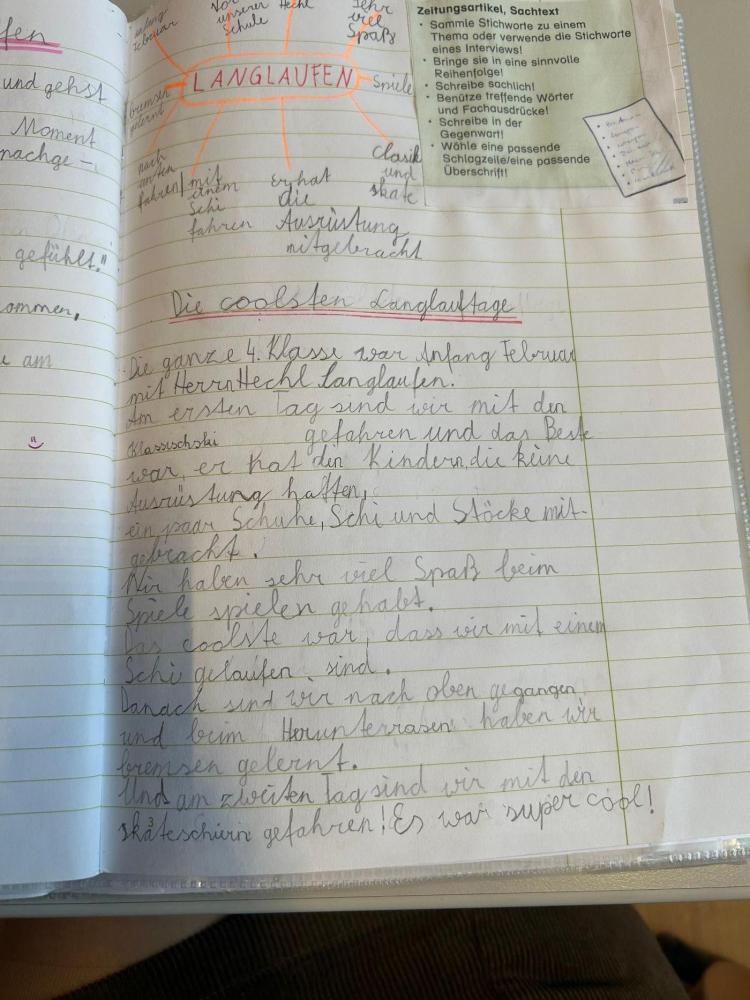 fen
und gehst
Moment
nachge-
gefühlt."
ommen,
am
Anfang
Februar
Vor
unserer
Schule
Hechl
Sehr
viel
Spaß
LANGLAUFEN
Spiele
bremsen
gelernt
nach
unten
fahren
mit
einem
Schi
fahren
Er hat
die
Ausrüstung
mitgebracht
Clasik
und
skate
Zeitungsartikel, Sachtext
• Sammle Stichworte zu einem
Thema oder verwende die Stichworte
eines Interviews!
• Bringe sie in eine sinnvolle
Reihenfolge!
• Schreibe sachlich!
• Benütze treffende Wörter
und Fachausdrücke!
• Schreibe in der
Gegenwart!
• Wähle eine passende
Schlagzeile/eine passende
Überschrift!
Die coolsten Langlauftage
Die ganze 4. Klasse war Anfang Februar
mit Herrn Hechl Langlaufen.
Am ersten Tag sind wir mit den
Klassischski gefahren und das Beste
war, er hat den Kindern, die keine
Ausrüstung hatten,
ein paar Schuhe, Schi und Stöcke mit-
gebracht.
Wir haben sehr viel Spaß beim
Spiele spielen gehabt.
Das coolste war, dass wir mit einem
Schi gelaufen sind.
Danach sind wir nach oben gegangen
und beim Herunterrasen haben wir
bremsen gelernt.
Und am zweiten Tag sind wir mit den
skateschiern gefahren! Es war super cool!